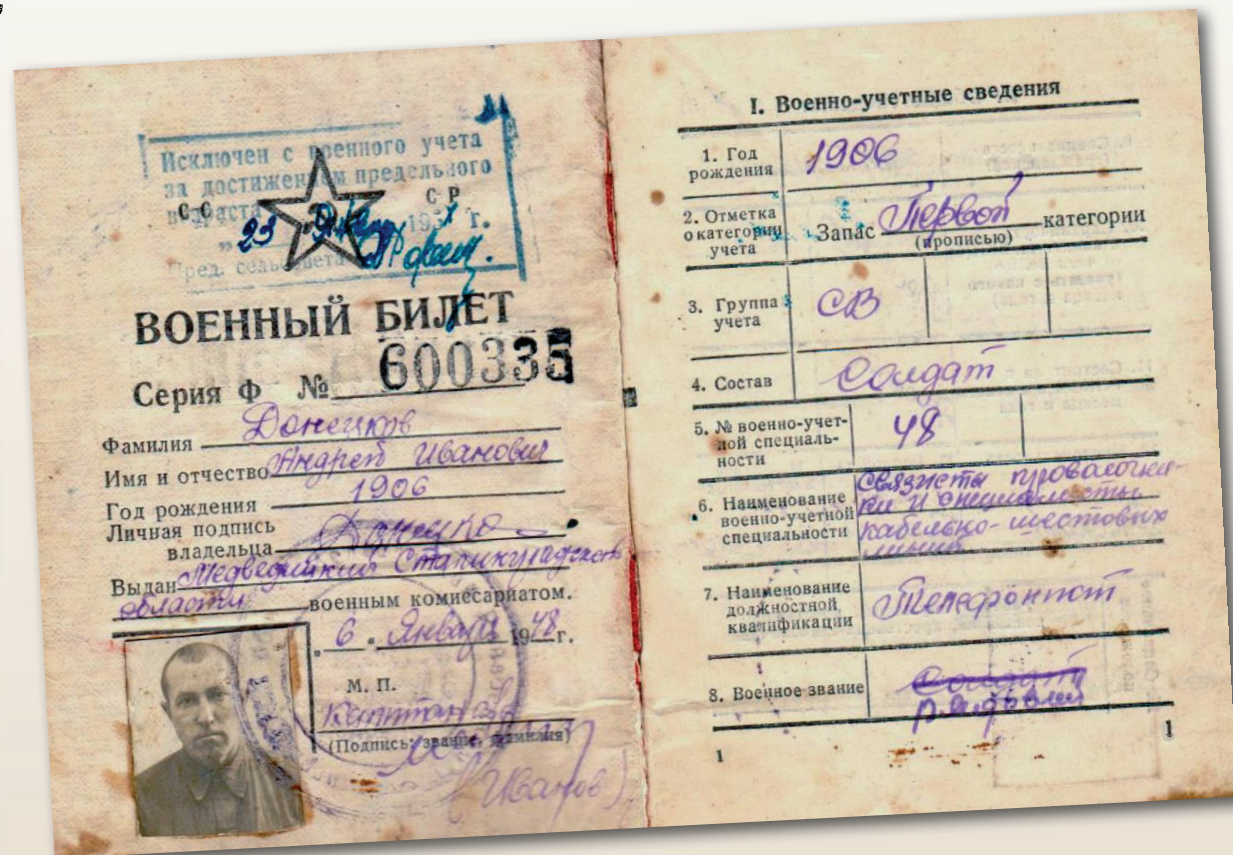 Исключен с военного учета
за достижением предельного
возраста
С С С Р
„ 23 195 г.
Пред. сельсовета
ВОЕННЫЙ БИЛЕТ
Серия Ф № 600335
Фамилия Донецков
Имя и отчество Андрей Иванович
Год рождения 1906
Личная подпись
владельца Донецко
Выдан Медведицкий Сталинградской
области военным комиссариатом.
„ 6 „ Января 1948 г.
М. П.
Капитан
(Подпись, звание, фамилия)
(Иванов)
I. Военно-учетные сведения
1. Год
рождения
1906
2. Отметка
о категории
учета
Запас Первой категории
(прописью)
3. Группа
учета
СВ
4. Состав
Солдат
5. № военно-учет-
ной специаль-
ности
48
6. Наименование
военно-учетной
специальности
Связисты проволочни-
ки и специалисты
кабельно-шестовых
линий
7. Наименование
должностной
квалификации
Телефонист
8. Военное звание
Солдат
рядовой
1
1